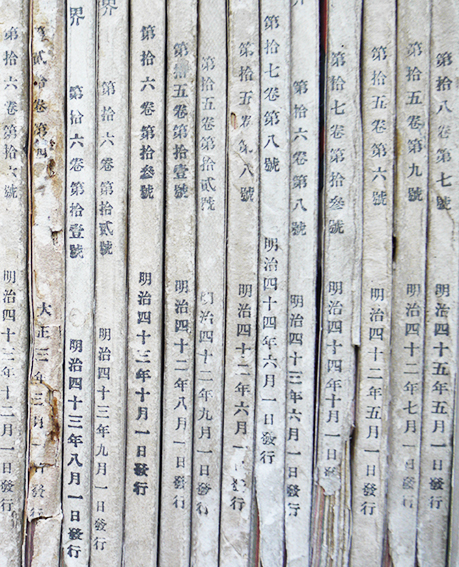 第拾八卷第七號 明治四十五年五月一日發行
第拾五卷第九號 明治四十二年七月一日發行
第拾五卷第六號 明治四十二年五月一日發行
第拾七卷第拾參號 明治四十四年十月一日發行
第拾六卷第八號 明治四十三年六月一日發行
第拾七卷第八號 明治四十四年六月一日發行
第拾五卷第八號 明治四十二年六月一日發行
第拾五卷第拾貳號 明治四十二年九月一日發行
第拾五卷第拾壹號 明治四十二年八月一日發行
第拾六卷第拾參號 明治四十三年十月一日發行
界 第拾六卷第拾貳號 明治四十三年九月一日發行
界 第拾六卷第拾壹號 明治四十三年八月一日發行
第貳拾卷第 大正三年三月一日發行
第拾六卷第拾六號 明治四十三年十二月一日發行